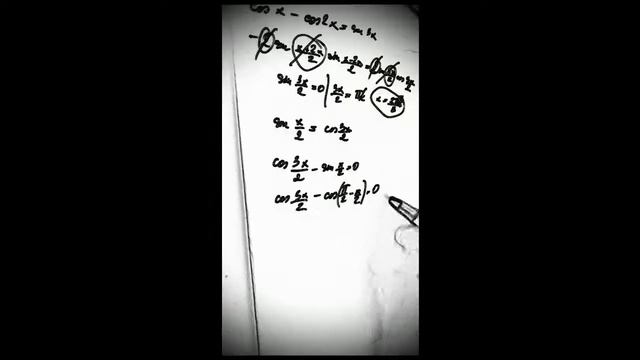 cos x - cos 2x = sin 3x
-2 sin (x+2x)/2 sin (x-2x)/2 = 2 sin 3x/2 cos 3x/2
sin 3x/2 = 0 | 3x/2 = πk
sin x/2 = cos 3x/2
cos 3x/2 - sin x/2 = 0
cos 3x/2 - cos(π/2 - x/2) = 0